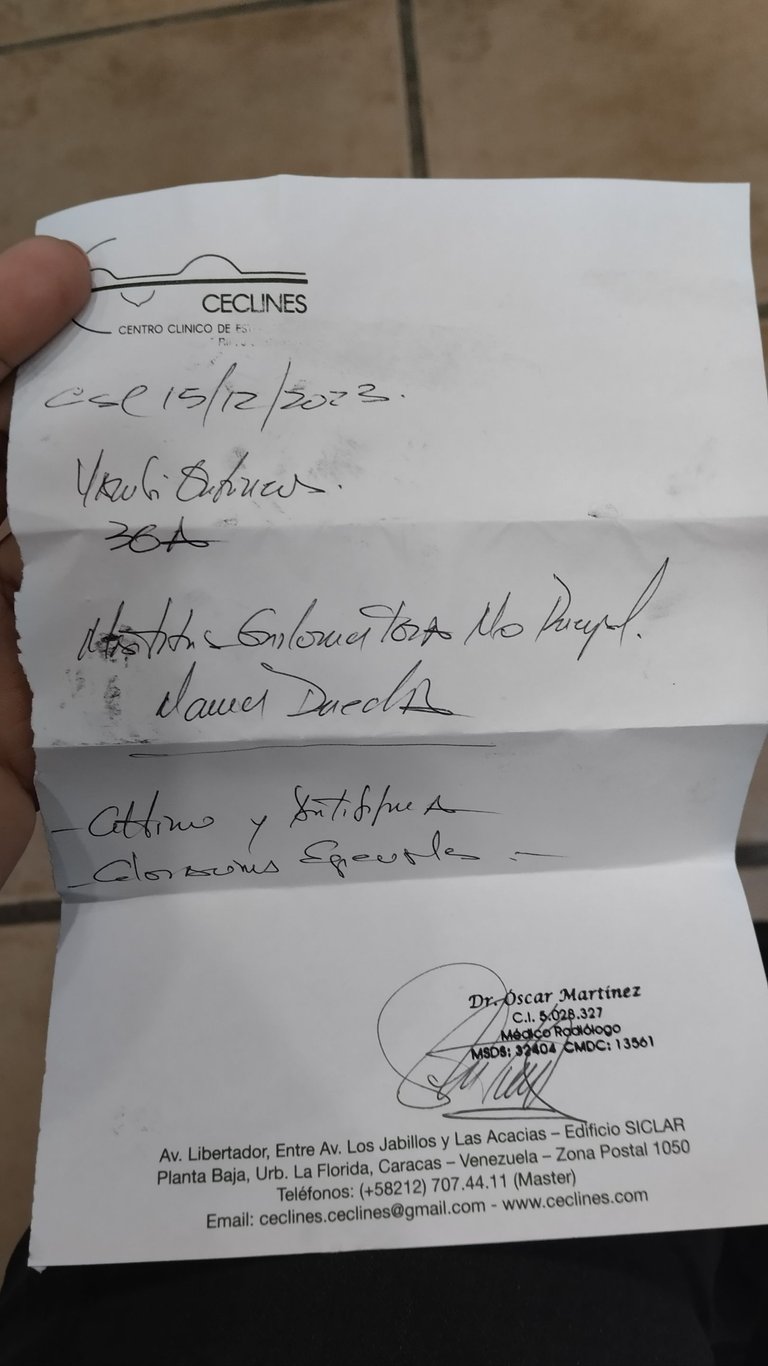 CECLINES
CENTRO CLINICO DE ES
CSC 15/12/2023.
36A
Mastitis Granulomatosa No Puerperal.
Mama Derecha
- Cultivo y Antibiograma
- Coloraciones Especiales.-
Dr. Óscar Martínez
C.I. 5.028.327
Médico Radiólogo
MSDS: 32404 CMDC: 13561
Av. Libertador, Entre Av. Los Jabillos y Las Acacias – Edificio SICLAR
Planta Baja, Urb. La Florida, Caracas – Venezuela – Zona Postal 1050
Teléfonos: (+58212) 707.44.11 (Master)
Email: ceclines.ceclines@gmail.com - www.ceclines.com